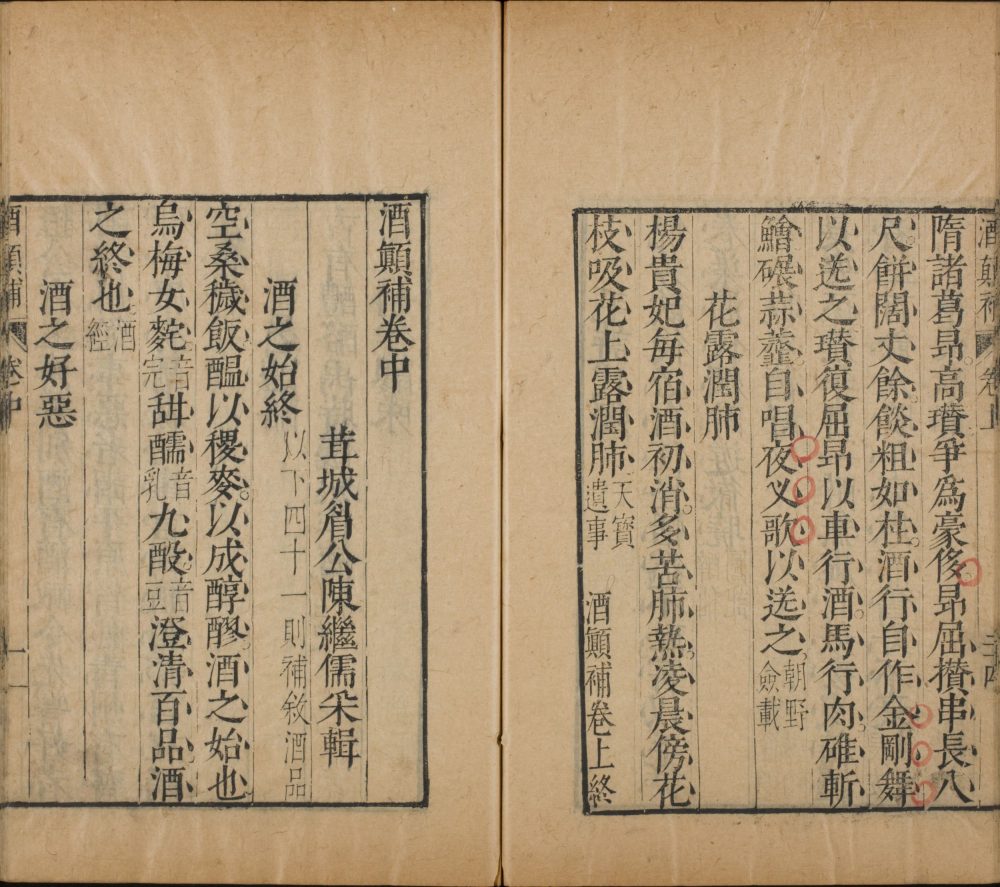 酒顛補 卷上 二十四
隋諸葛昂高瓚爭爲豪侈昂屈攢串長八
尺餠闊丈餘餤粗如柱酒行自作金剛舞
以送之瓚復屈昂以車行酒馬行肉碓斬
鱠碾蒜虀自唱夜叉歌以送之朝野僉載
花露潤肺
楊貴妃每宿酒初消多苦肺熱凌晨傍花
枝吸花上露潤肺天寶遺事 酒顛補卷上終
酒顛補卷中
茸城眉公陳繼儒采輯
酒之始終以下四十一則補敘酒品
空桑穢飯醞以稷麥以成醇醪酒之始也
烏梅女䴷音完甛醹音乳九酘音豆澄清百品酒
之終也酒經
酒之好惡
酒顛補 卷中 一